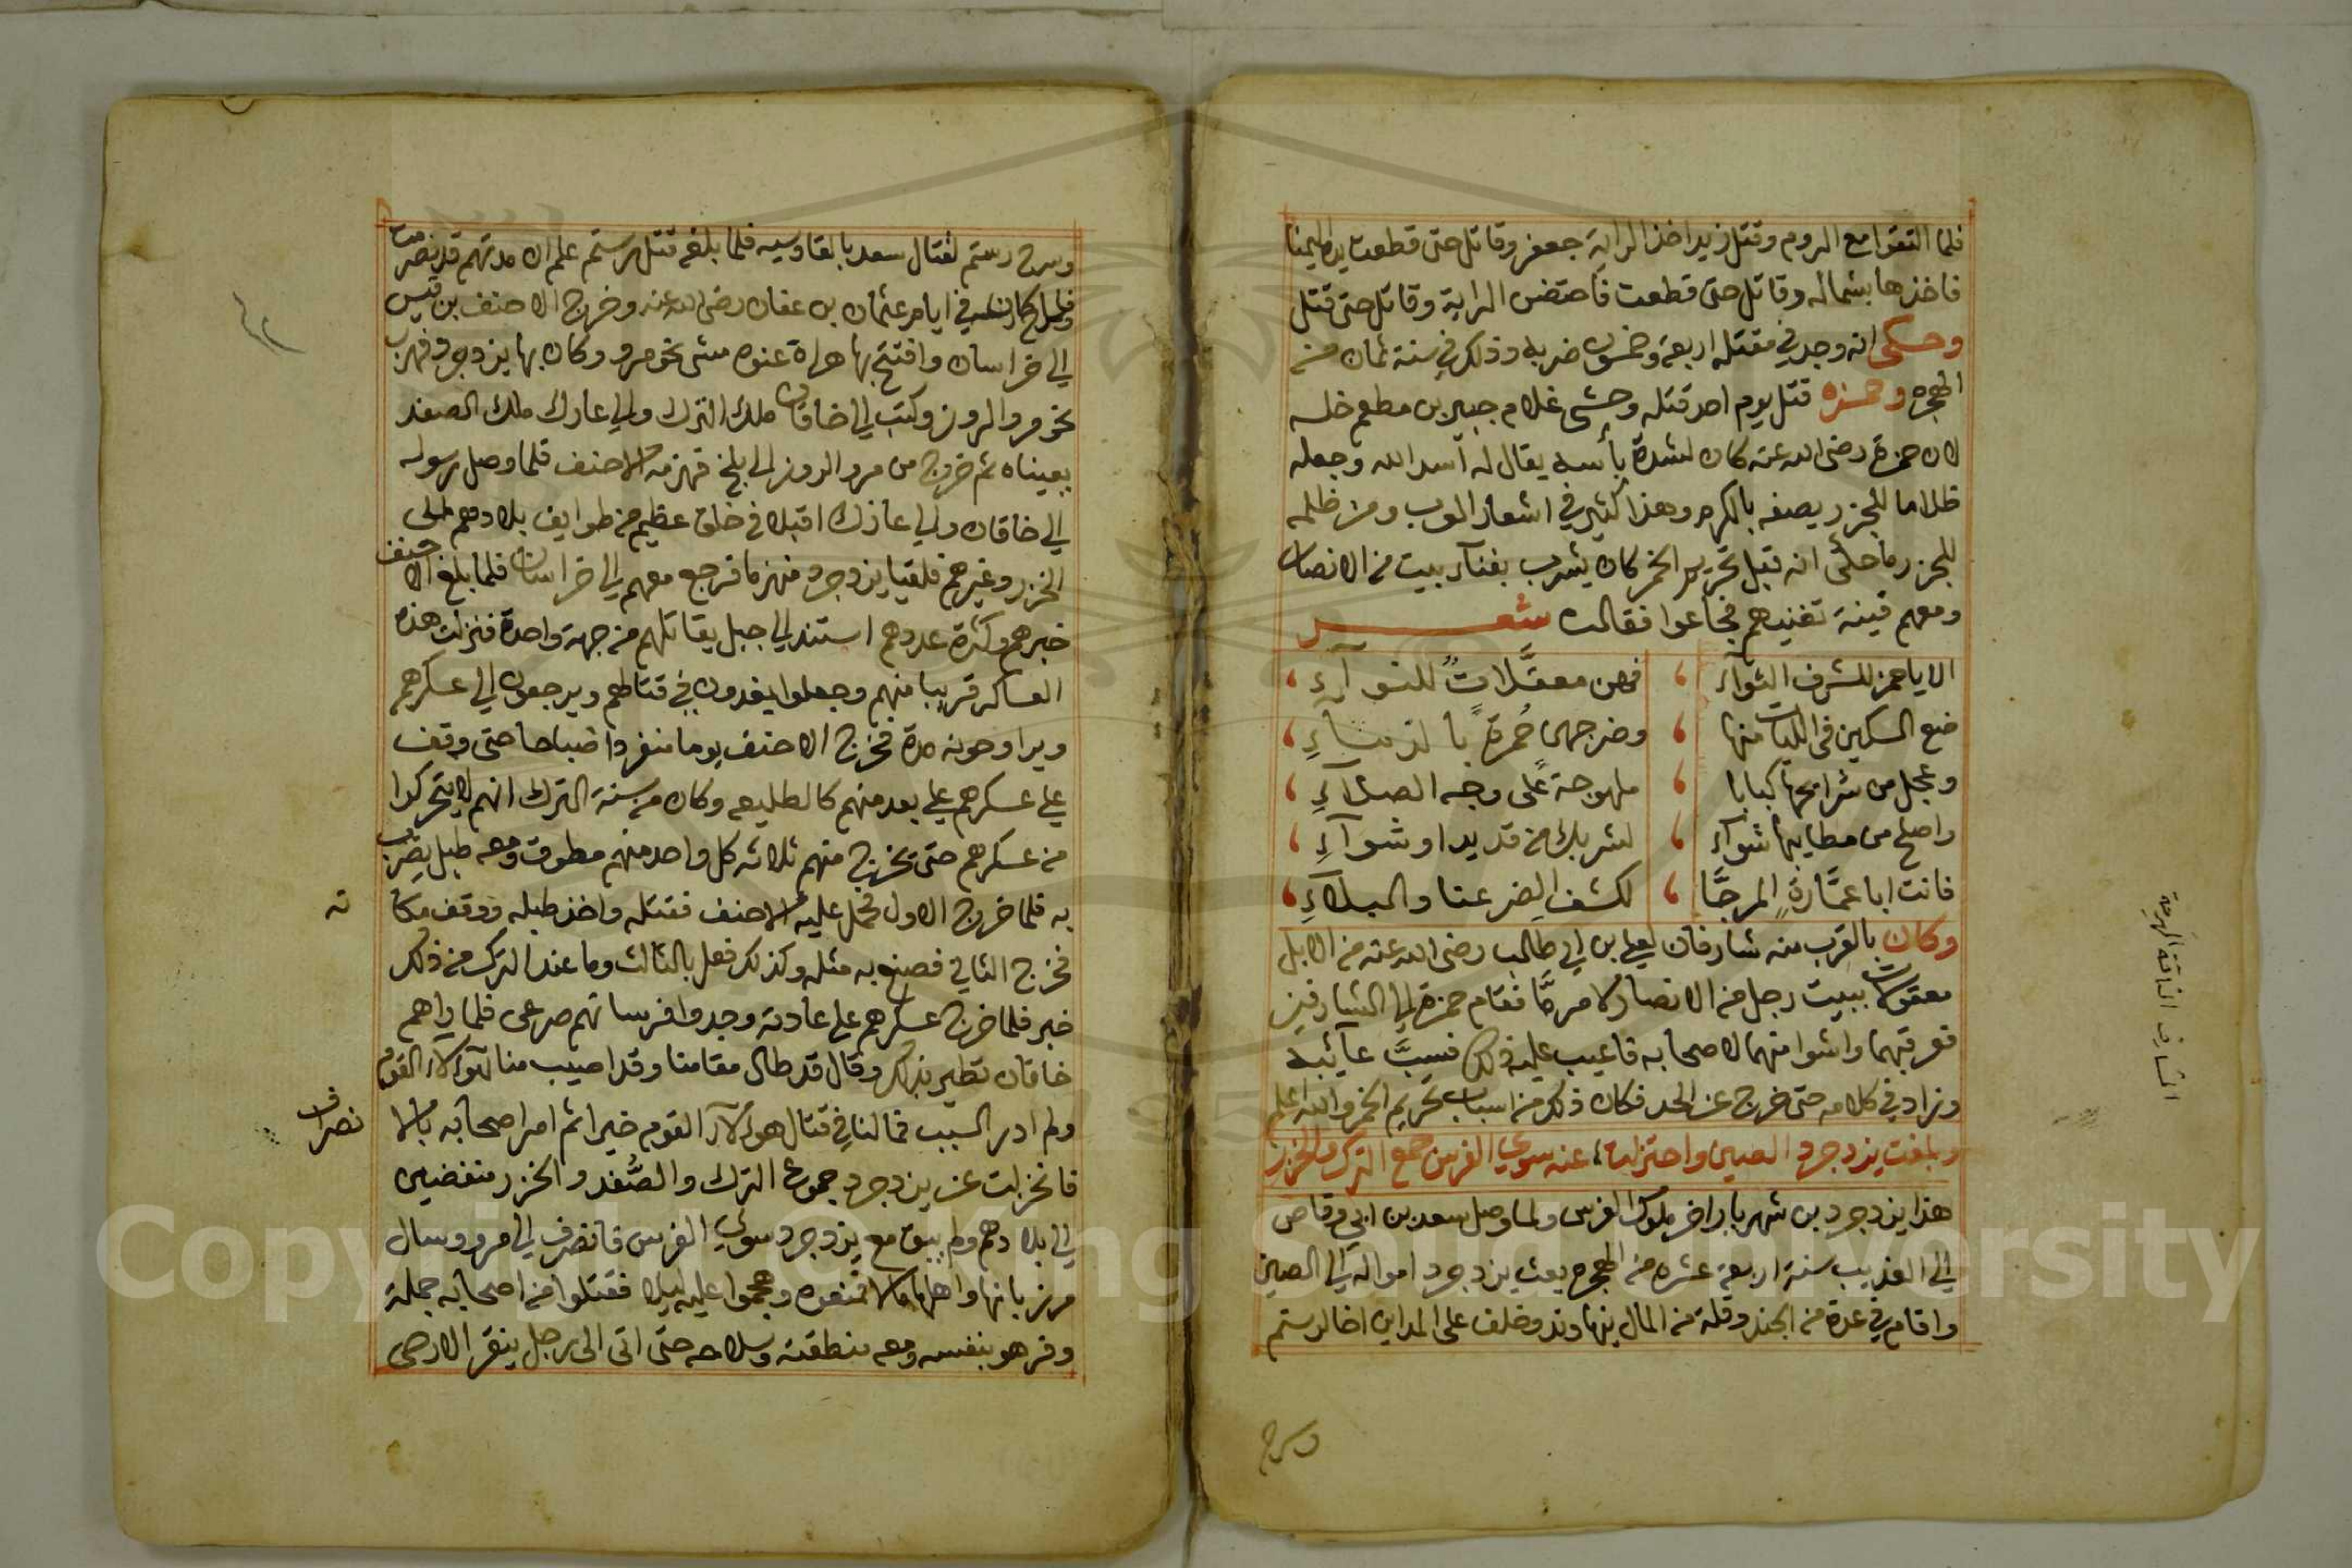 فلما التقوا مع الروم وقتل زيد اخذ الراية جعفر وقاتل حتى قطعت يده اليمنا
فاخذها بشماله وقاتل حتى قطعت فاحتضن الراية وقاتل حتى قتل
وحكى انه وجد في مقتله اربعة وخمسون ضربه وذلك في سنة ثمان من
الهجره وحمزه قتل يوم احد قتله وحشى غلام جبير بن مطعم خلسه
لان حمزة رضى الله عنه كان لشدة بأسه يقال له أسد الله وجعله
ظلاما للجزر يصفه بالكرم وهذا كثير في اشعار العرب ومن ظلمه
للجزر ما حكى انه قبل تحريم الخمر كان يشرب بفنآء بيت من الانصار
ومعهم قينة تغنيهم فجاعوا فقالت شعر
الا يا حمز للشرف النوآء ، فهن معقلات للنوآء ،
ضع السكين في اللبات منها ، وضرجهن حمزة بالدماء ،
وعجل من شرايحها كبابا ، ملهوجة على وجه الصلآء ،
واصلح من مطايبها شوآء ، لشربك من قديد او شوآء ،
فانت ابا عمارة المرجا ، لكشف الضر عنا والبلآء ،
وكان بالقرب منه شارفان لعلي بن ابي طالب رضى الله عنه من الابل
معقولات ببيت رجل من الانصار لامر ما فقام حمزة الى الشارفين
فعرقبهما واشوا منهما لاصحابه فاعيب عليه ذلك فسب عآئبه
وزاد في كلامه حتى خرج عن الحد فكان ذلك من اسباب تحريم الخمر والله اعلم
وبلغت يزدجرد الصين واختزلت عنه سوي الفرس جمع الترك والخزر
هذا يزدجرد بن شهريار اخر ملوك الفرس ولما وصل سعد بن ابي وقاص
الى العذيب سنة اربعة عشره من الهجره بعث يزدجرد امواله الى الصين
واقام في عدة من الجند وقلة من المال بنهاوند وخلف على المداين اخا لرستم
وسرح
الشارف الناقة الهرمة
وسرح رستم لقتال سعد بالقادسيه فلما بلغه قتل رستم علم ان مدتهم قد تصرمت
فلما كان في ايام عثمان بن عفان رضى الله عنه وخرج الاحنف بن قيس
الى خراسان وافتتح بها هراة عنوه مشى نحو مرو وكان بها يزدجرد فهرب
نحو مرو الروز وكتب الى خاقان ملك الترك والى عارك ملك الصغد
بعيناه ثم خروج من مرو الروز الى بلخ فهزمه الاحنف فلما وصل رسوله
الى خاقان والى عازك اقبلا في خلق عظيم من طوايف بلادهم
الخزر وغيرهم فلقيا يزدجرد منهزما فرجع معهم الى خراسان فلما بلغ الاحنف
خبرهم وكثرة عددهم استند الى جبل يقاتلهم من جهة واحدة فنزلت هذه
العساكر قريبا منهم وجعلوا يغدون في قتالهم ويرجعون الى عسكرهم
ويراوحونه مدة فخرج الاحنف يوما منفردا صباحا حتى وقف
على عسكرهم على بعد منهم كالطليعه وكان من سنة الترك انهم لا يتحركوا
من عسكرهم حتى يخرج منهم ثلاثه كل واحد منهم مطوق ومعه طبل يضرب
به فلما خرج الاول حمل عليه الاحنف فقتله واخذ طبله ووقف مكا
نه
فخرج الثاني فصنع به مثله وكذلك فعل بالثالث وما عند الترك من ذلك
خبر فلما خرج عسكرهم على عادته وجدوا فرسانهم صرعى فلما راهم
خاقان تطير بذلك وقال قد طال مقامنا وقد اصيب منا هؤلاء القوم
ولم ادر السبب فما لنا في قتال هؤلآء القوم خيرا ثم امر اصحابه بالا
نصراف
فانخزلت عن يزدجرد جموع الترك والصغد والخزر منفضين
الى بلادهم ولم يبق مع يزدجرد سوي الفرس فانصرف الى مرو وسال
مرزبانها واهلها مالا فمنعوه وهجموا عليه ليلا فقتلوا من اصحابه جملة
وفر هو بنفسه ومعه منطقته وسلاحه حتى اتى الى رجل ينقر الارحى
Copyright © King Saud University